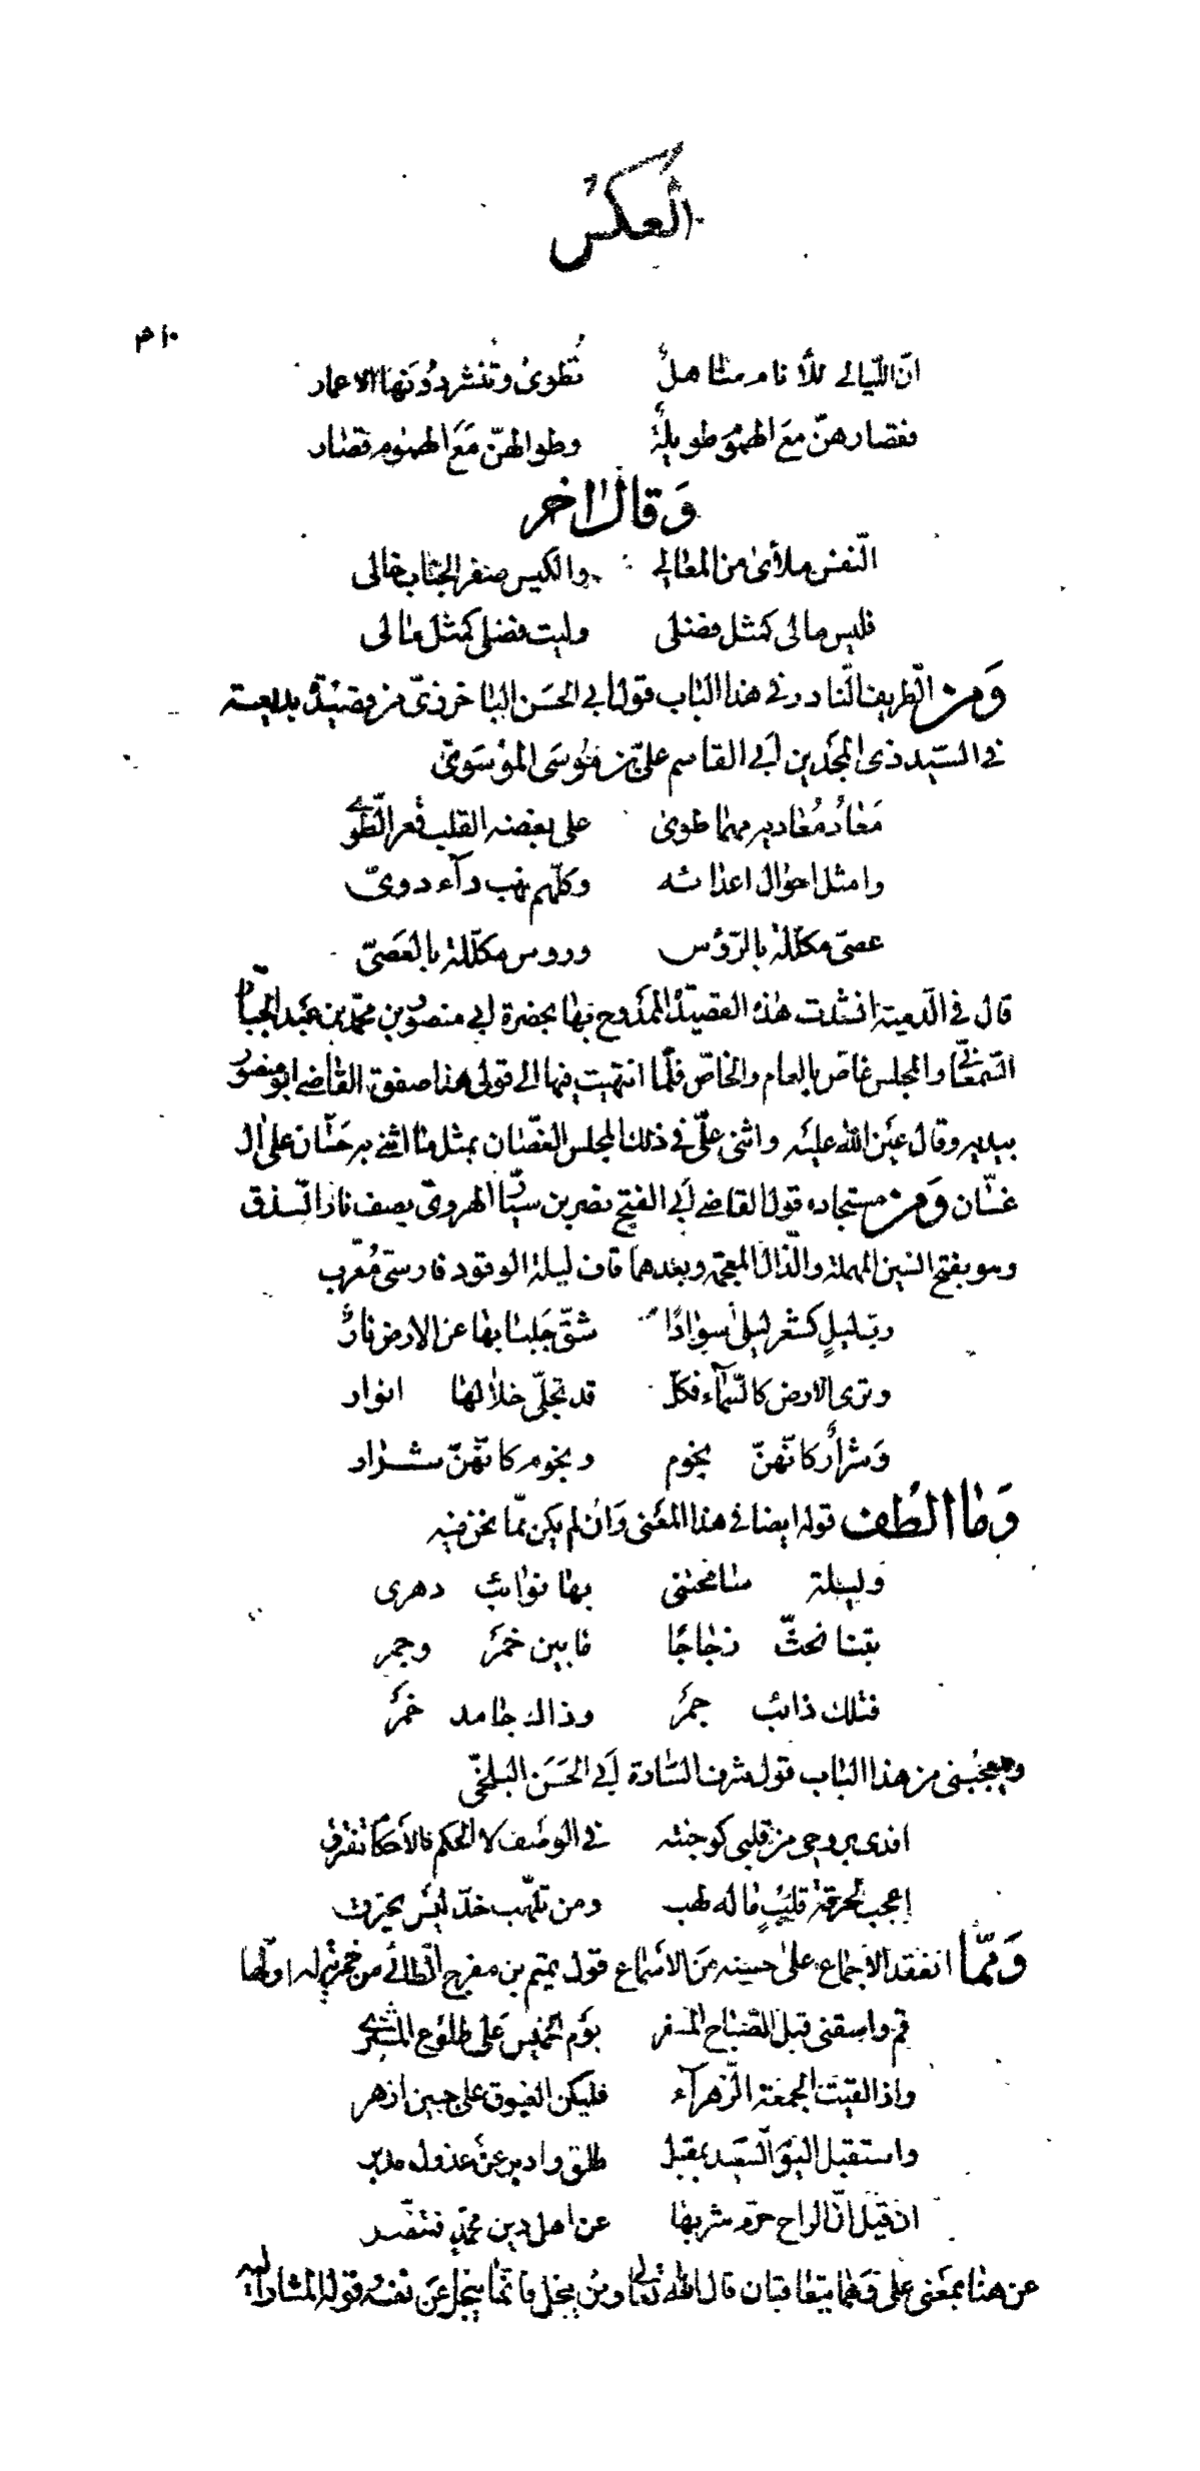 العكس
٣١٠
انّ الليالى للأنام مناهلٌ تُطوى وتنشر دُونها الاعمار
فقصارهنّ معَ الهموم طويلةٌ وطوالهنّ مَعَ الهموم قصار
وَقال اخر
النّفس ملأى من المعالى والكيس صفر الجناب خالى
فليس مالى كمثل فضلى وليت فضلى كمثل مالى
وَمن الطريف النّادر فى هذا الباب قول ابى الحسَن الباخرزىّ من قصيدة بديعة
فى السيّد ذى المجدين أبى القاسم علىّ بن مُوسَى الموْسَوىّ
مَعاد مُعاديه مهما طوى على بغضه القلب قعر الطّوىّ
وامثل احوال اعدائه وكلّهم نهب دآء دوىّ
عصىّ مكلّلة بالرّؤس وروس مكلّلة بالعَصىّ
قال فى الدمية انشدت هذه القصيدة الممدوح بها بحضرة ابى منصور بن محمّد بن عَبد الجبّار
السّمعانىّ والمجلس غاصّ بالعام والخاصّ فلمّا انتهيت فيها الى قولى هذا صفق القاضى ابو منصور
بيديه وقال عَين الله عليَه واثنى علىّ فى ذلك المجلس الغصّان بمثل ما اثنى به حَسّان على ال
غسّان وَمن مستجاده قول القاضى أبى الفتح نصر بن سيّار الهروىّ يصف نار السّذق
وهو بفتح السين المهملة والذّال المعجمة وبعدهما قاف ليلة الوقود فارسىّ مُعَرب
ربّ ليلٍ كشعر ليلى سوادًا شقّ جلبابها عن الارض نارُ
وترى الارض كالسّمآء فكلّ قد تجلّى خلالها انوار
وَشرارٌ كانّهنّ نجوم ونجوم كانّهنّ شرار
وَما الطف قوله ايضا فى هذا المعَنى وَان لم يكن ممّا نحن فيه
وليلة سامحتنى بها نوائب دهرى
بتنا نحثّ زجاجًا مابين خمرَ وجمر
فتلك ذائب جمرَ وذاك جامد خمرَ
ويعجبُنى من هذا الباب قول شرف السّادة أبى الحَسَن البلخىّ
افدى بروحى من قلبى كوجنته فى الوصَف لا الحكم فالأحكام تفترق
إعجب لحرقة قلبٍ ماله لهب ومن تلهّب خدّ ليْس يحترق
وَممّا انعقد الاجماع على حسنه من الأسماع قول تميم بن مفرج الطّائى من خمريّة له اوّلها
قم واسقنى قبل الصّباح المسفر يوْم الخميس عَلى طلوع المشترى
واذا لقيت الجمعة الزّهرآء فليكن الغبوق على جبين ازهر
واستقبل اليَوم السّعيد بمقبل طلق وادبر عن عذول مدبر
ان قيل انّ الراح حرّم شربها عن اهل دين محمّد فتنصّر
عن هنا بمعَنى على فهما يتعاقبان قال الله تعالى ومن يبخل فانّما يبخل عَن نفسه قوله المشار اليه